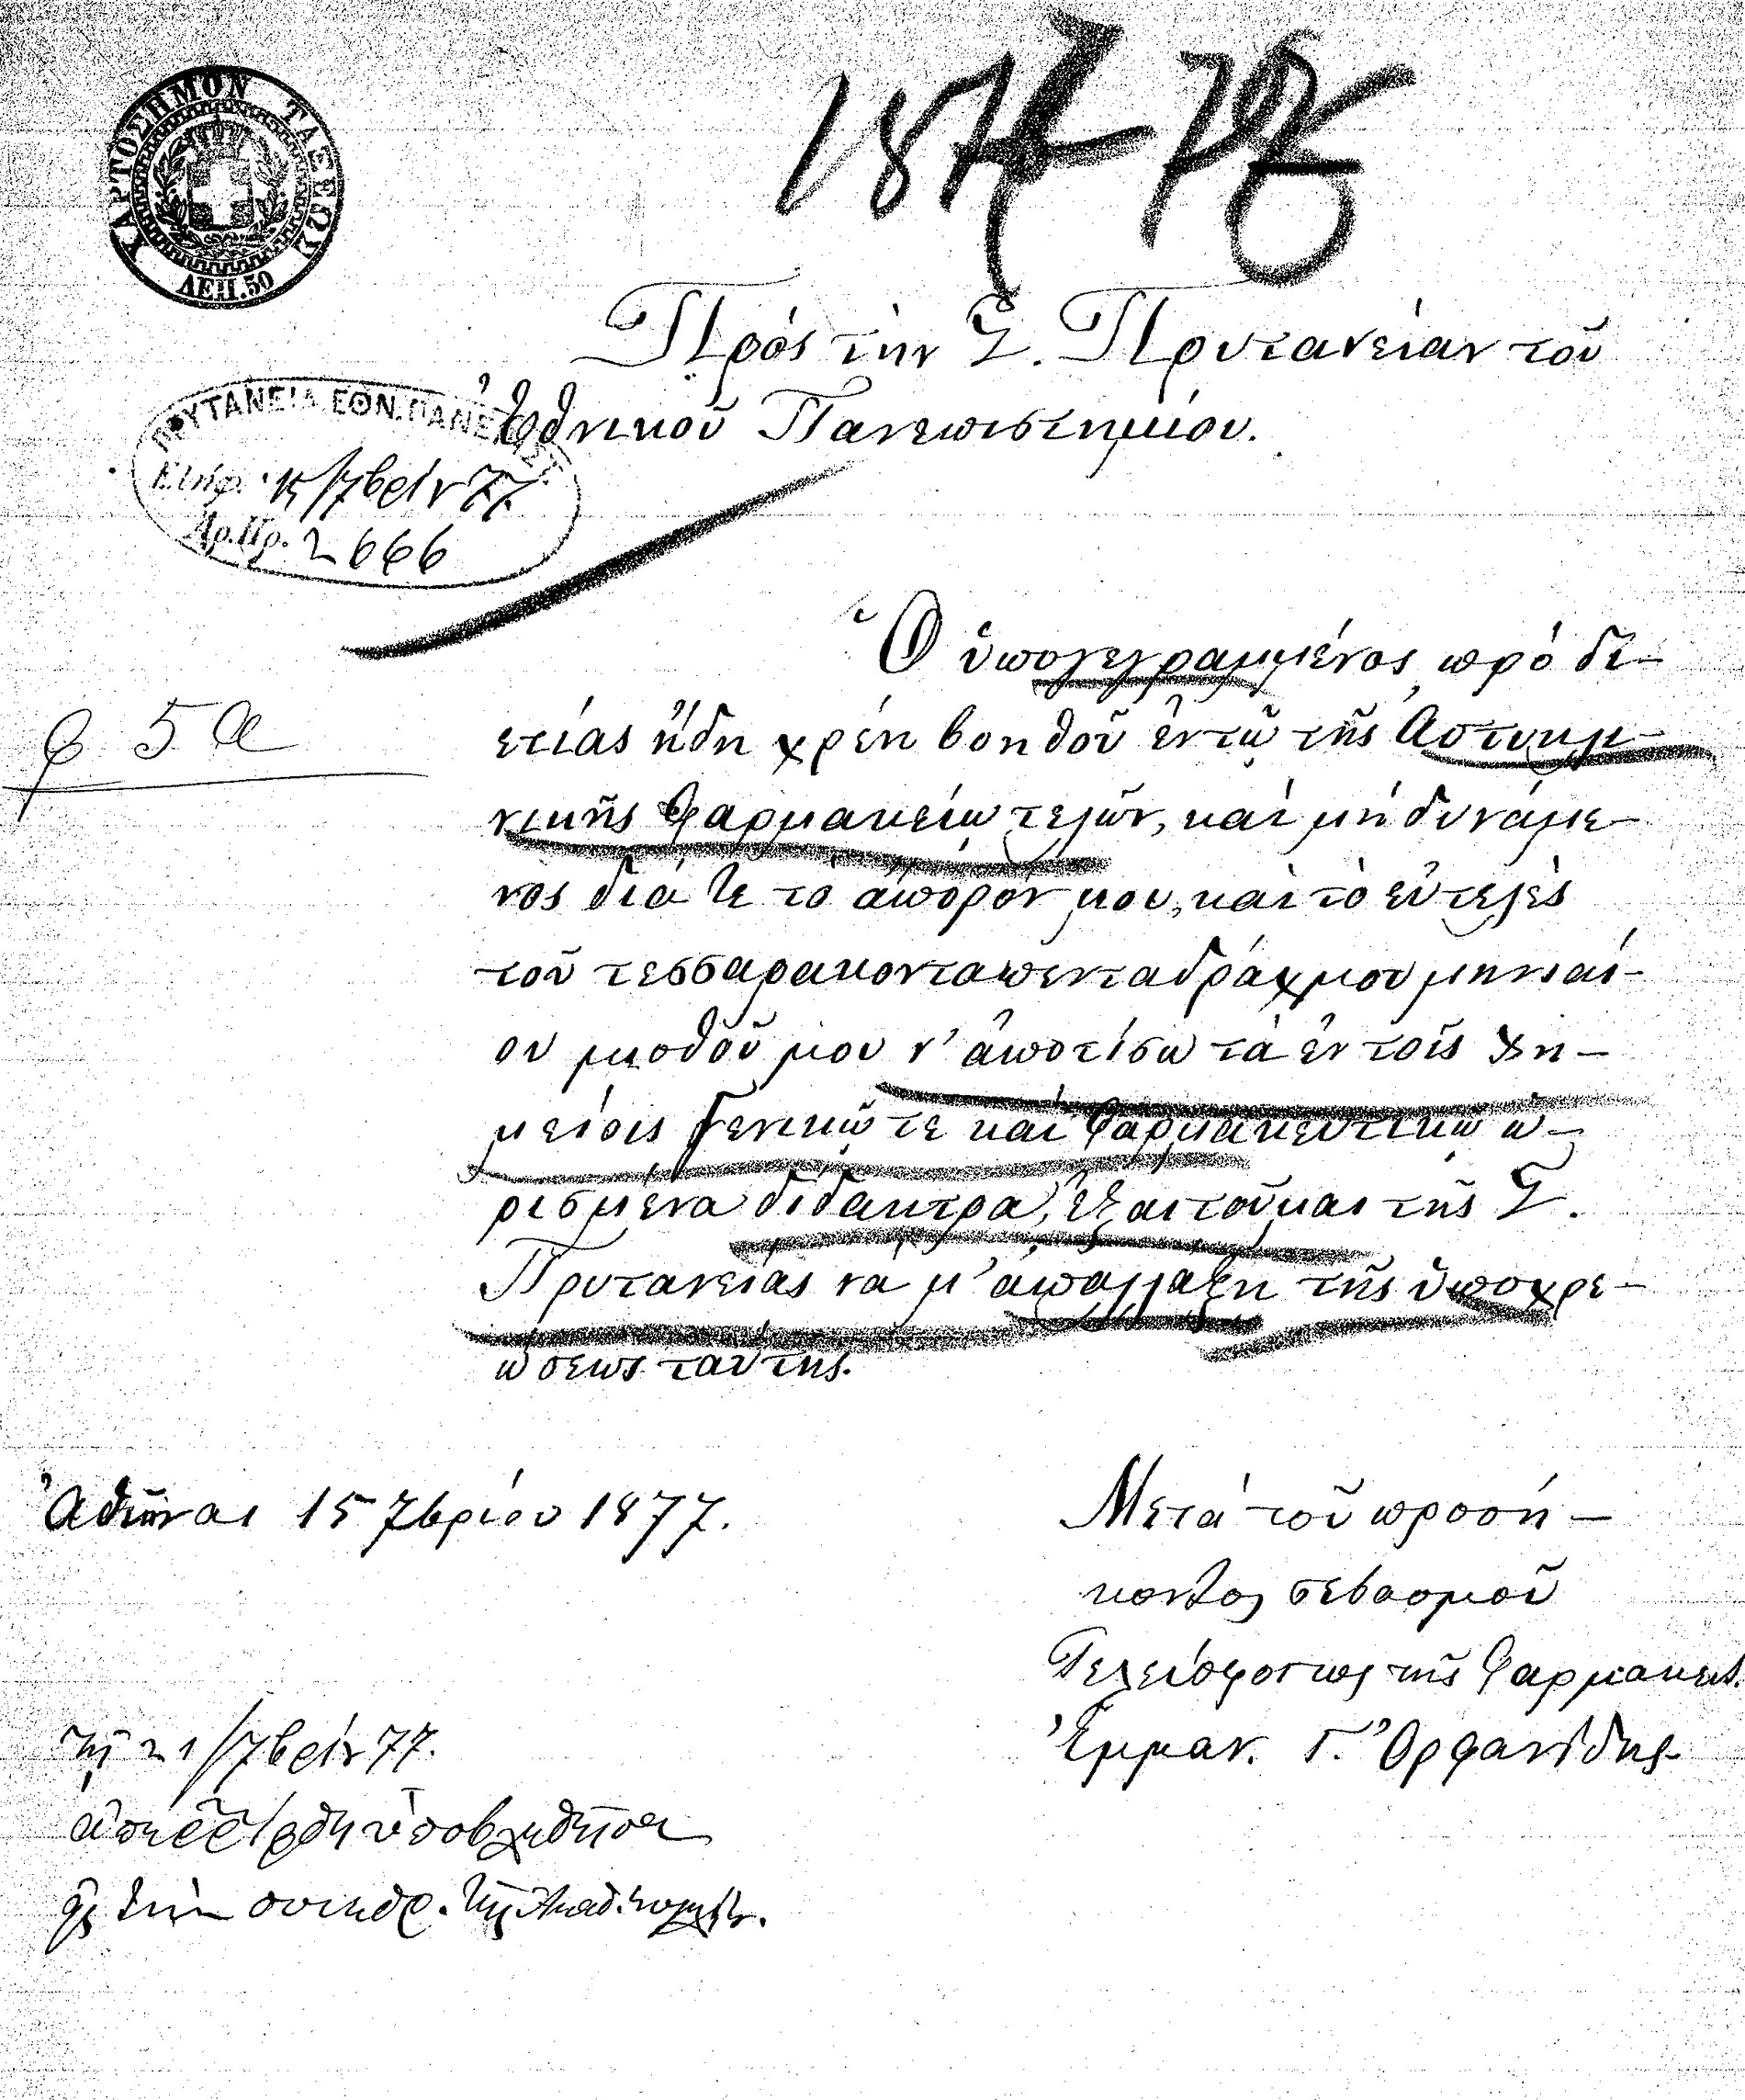 1877-78
ΧΑΡΤΟΣΗΜΟΝ ΤΑΞΕΩΣ
ΛΕΠ.50
Πρὸς τὴν Σ. Πρυτανείαν τοῦ
Ἐθνικοῦ Πανεπιστημίου.
ΠΡΥΤΑΝΕΙΑ ΕΘΝ. ΠΑΝΕΠΙΣΤ.
Εἰσήχ. 15/7βρίου 77.
Ἀρ.Πρ. 2666
Ὁ ὑπογεγραμμένος πρὸ δι-
φ 5 α
ετίας ἤδη χρέη βοηθοῦ ἐν τῷ τῆς Ἀστυκλι-
νικῆς Φαρμακείῳ τελῶν, καὶ μὴ δυνάμε-
νος διά τε τὸ ἄπορόν μου, καὶ τὸ εὐτελὲς
τοῦ τεσσαρακονταπενταδράχμου μηνιαί-
ου μισθοῦ μου ν' ἀποτίσω τὰ ἐν τοῖς Χη-
μείοις Γενικῷ τε καὶ Φαρμακευτικῷ ὡ-
ρισμένα δίδακτρα, ἐξαιτοῦμαι τῆς Σ.
Πρυτανείας νὰ μ' ἀπαλλάξῃ τῆς ὑποχρε-
ώσεως ταύτης.
Ἀθῆναι 15 7βρίου 1877.
Μετὰ τοῦ προσή-
κοντος σεβασμοῦ
Τελειόφοιτος τῆς Φαρμακευτ.
Ἐμμαν. Γ. Ὀρφανίδης
τῇ 21/7βρίου 77.
ἀπερρίφθη ὑποβληθεῖσα
εἰς τὴν συνεδρ. τῆς Ἀκαδ.